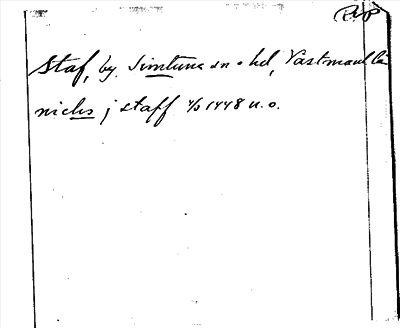 Staf, by. Simtuna sn o hd, Västmanl la
niclis j staff 4/5 1448 u.o.